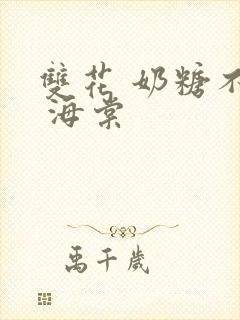 雙花 奶糖不
海棠
禹千歲